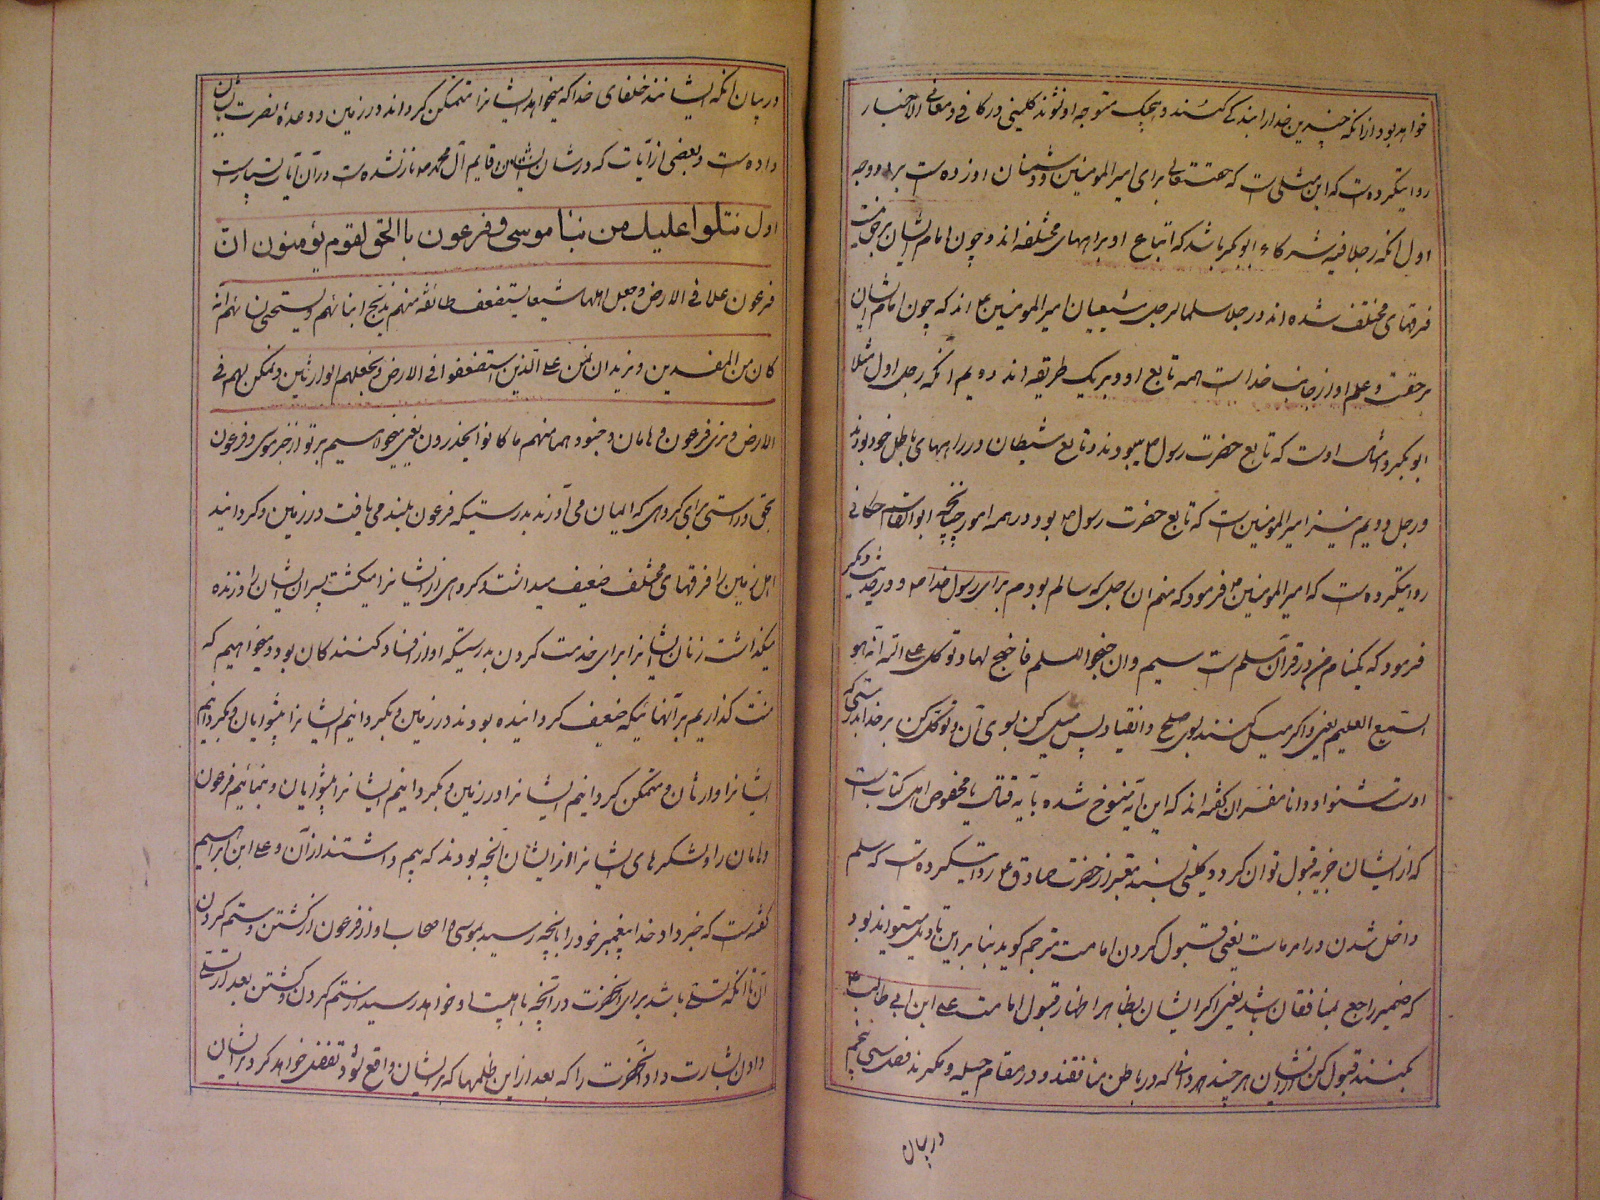 خواهد بود از آنکه چنین خدا را بندگی کنند و هیچیک متوجه او نشوند کلینی در کافی و معانی الاخبار
روایتکرده‌ست که این مثلی‌ست که حقتعالی برای امیرالمومنین و دشمنان او زده‌ست بر دو وجه
اول آنکه رجلا فیه شرکاء ابوبکر باشد که اتباع او براههای مختلفه‌اند و چون امام ایشان بر حق نیست
فرقهای مختلف شده‌اند و رجلا سلما لرجل شیعیان امیرالمومنین ع‌اند که چون امام ایشان
بر حقست و علم او از جانب خداست همه تابع او و بر یک طریقه‌اند دویم آنکه رجل اول مثلا
ابوبکر و امثال اوست که تابع حضرت رسول ص نبودند و تابع شیطان و رایهای باطل خود بودند
و رجل دویم نیز امیرالمومنین‌ست که تابع حضرت رسول ص بود در همه امور چنانچه ابوالقاسم حسکانی
روایتکرده‌ست که امیرالمومنین ع فرمود که منم ان رجلی که سالم بودم برای رسول خدا ص و در حدیث دیگر
فرمود که یکنام من در قرآن سلم‌ست سیم وان جنحوا للسلم فاجنح لها و توکل علی الله انه هو
السمیع العلیم یعنی و اگر میل کنند بسوی صلح و انقیاد پس میل کن بسوی آن و توکل کن بر خدا بدرستیکه
اوست شنوا و دانا مفسران گفته‌اند که این آیه منسوخ شده بآیه قتال یا مخصوص اهل کتاب‌ست
که از ایشان جزیه قبول توان کرد و کلینی بسند معتبر از حضرت صادق ع روایتکرده‌ست که سلم
داخل شدن در امر ماست یعنی قبول کردن امامت مترجم گوید بنا بر این تاویل میتواند بود
که ضمیر راجع بمنافقان باشد یعنی اگر ایشان بظاهر اظهار قبول امامت علی ابن ابی طالب ع
بکنند قبول کن از ایشان هر چند میدانی که در باطن منافقند و در مقام حیله و مکرند فصل سی پنجم
در بیان
در بیان آنکه ایشانند خلفای خدا که میخواهد ایشانرا متمکن گرداند در زمین و وعدهٔ نصرت بایشان
داده‌ست و بعضی از آیات که در شان ایشان و قایم آل محمد ص نازل شده‌ست و در آن آیات بسیارست
اول نتلوا علیک من نبأ موسی و فرعون بالحق لقوم یؤمنون انّ
فرعون علا فی الارض و جعل اهلها شیعا یستضعف طائفة منهم یذبح ابنائهم و یستحیی نسائهم انه
کان من المفسدین و نرید ان نمن علی الذین استضعفوا فی الارض و نجعلهم الوارثین و نمکن لهم فی
الارض و نری فرعون و هامان و جنودهما منهم ما کانوا یحذرون یعنی میخوانیم بر تو از خبر موسی و فرعون
بحق و راستی برای گروهی که ایمان می‌آورند بدرستیکه فرعون بلندی یافت در زمین و گردانید
اهل زمین را فرقهای مختلف ضعیف میداشت گروهی از ایشانرا میکشت پسران ایشان را و زنده
میگذاشت زنان ایشانرا برای خدمت کردن بدرستیکه او از افساد کنندگان بود و میخواهیم که
منت گذاریم بر آنهائیکه ضعیف گردانیده بودند در زمین و بگردانیم ایشانرا پیشوایان و بگردانیم
ایشانرا وارثان و متمکن گردانیم ایشانرا در زمین و بگردانیم ایشانرا پیشوایان و بنمائیم فرعون
و هامان را و لشکرهای ایشانرا از ایشان آنچه بودند که بیم داشتند از آن و علی ابن ابراهیم
گفته‌ست که خبر داد خدا پیغمبر خود را بانچه رسید بموسی و اصحاب او از فرعون از کشتن و ستم کردن
تا آنکه تسلی باشد برای آنحضرت در آنچه باهلبیت او خواهد رسید از ستم کردن و کشتن بعد از تسلی
دادن بشارت داد آنحضرت را که بعد از این ظلمها که بر ایشان واقع شود تفضل خواهد کرد بر ایشان